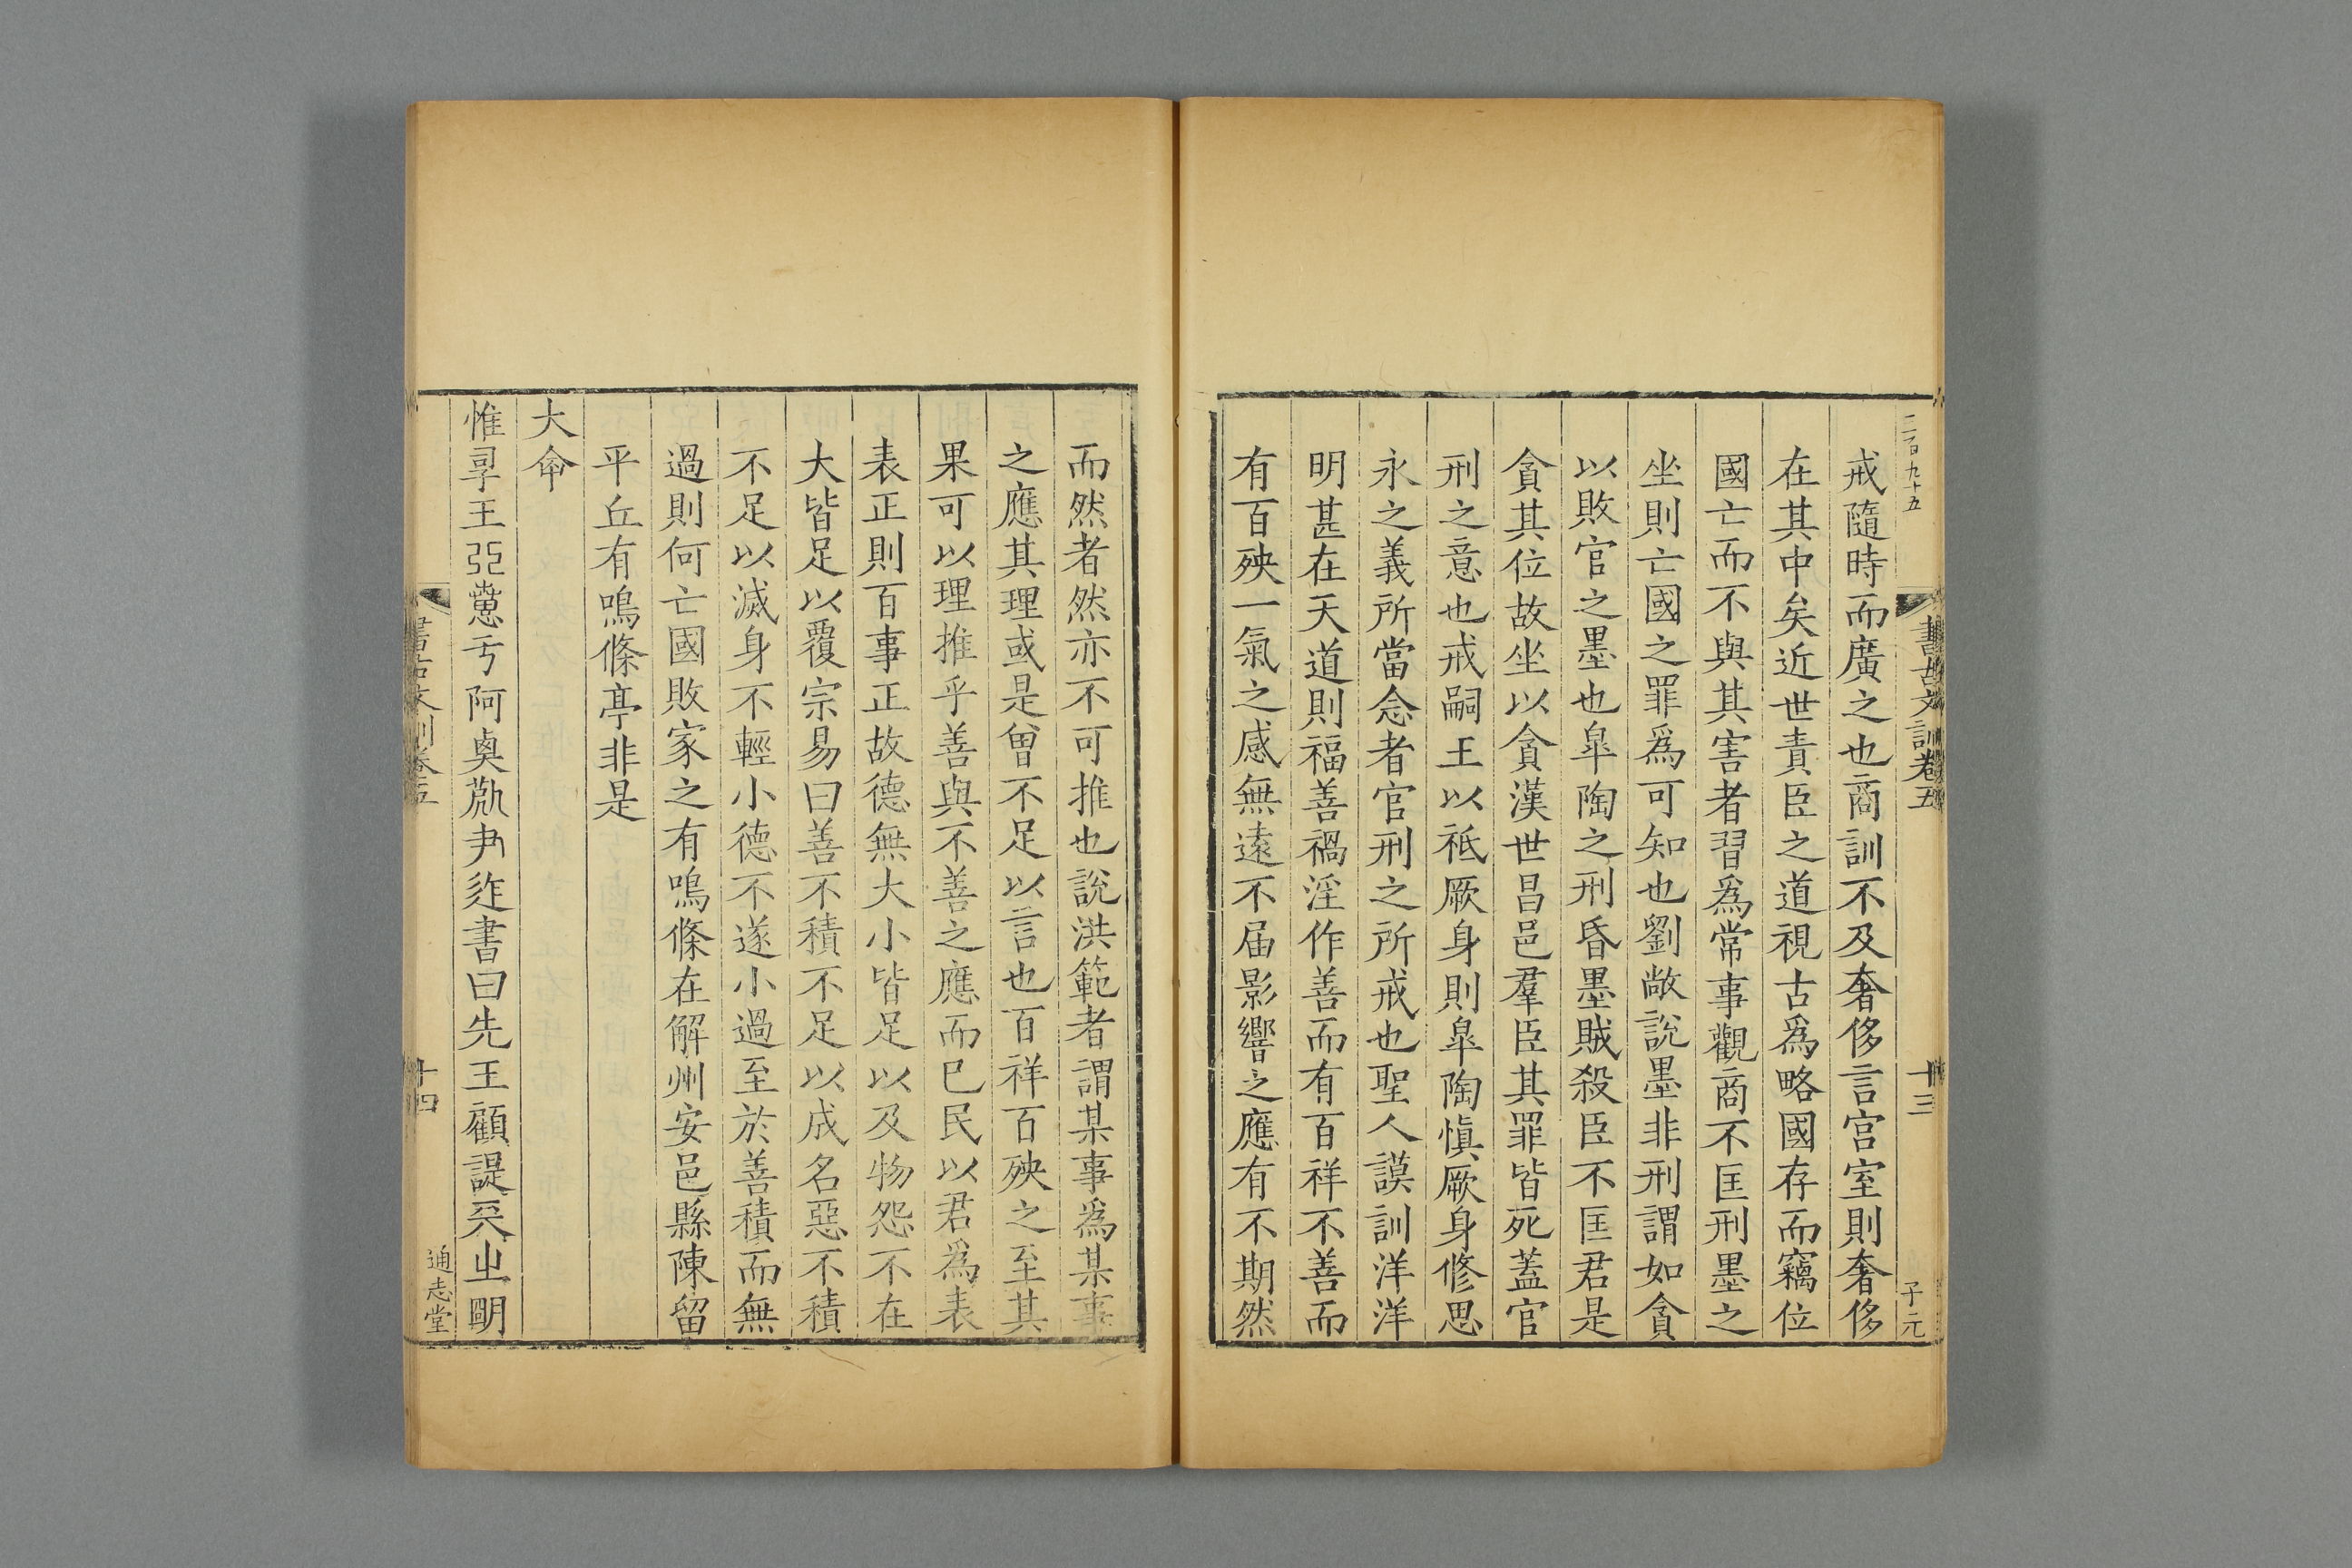 二百九十五
書古文訓卷五
十三
子元
戒隨時而廣之也商訓不及奢侈言宮室則奢侈
在其中矣近世責臣之道視古爲略國存而竊位
國亡而不與其害者習爲常事觀商不匡刑墨之
坐則亡國之罪爲可知也劉敞說墨非刑謂如貪
以敗官之墨也皐陶之刑昏墨賊殺臣不匡君是
貪其位故坐以貪漢世昌邑羣臣其罪皆死蓋官
刑之意也戒嗣王以祗厥身則皐陶愼厥身修思
永之義所當念者官刑之所戒也聖人謨訓洋洋
明甚在天道則福善禍淫作善而有百祥不善而
有百殃一氣之感無遠不届影響之應有不期然
而然者然亦不可推也說洪範者謂某事爲某事
之應其理或是曾不足以言也百祥百殃之至其
果可以理推乎善與不善之應而已民以君爲表
表正則百事正故德無大小皆足以及物怨不在
大皆足以覆宗易曰善不積不足以成名惡不積
不足以滅身不輕小德不遂小過至於善積而無
過則何亡國敗家之有鳴條在解州安邑縣陳留
平丘有鳴條亭非是
大命
惟王弫亐阿書曰先王顧諟兲㞢朙
書古文訓卷五
十四
通志堂